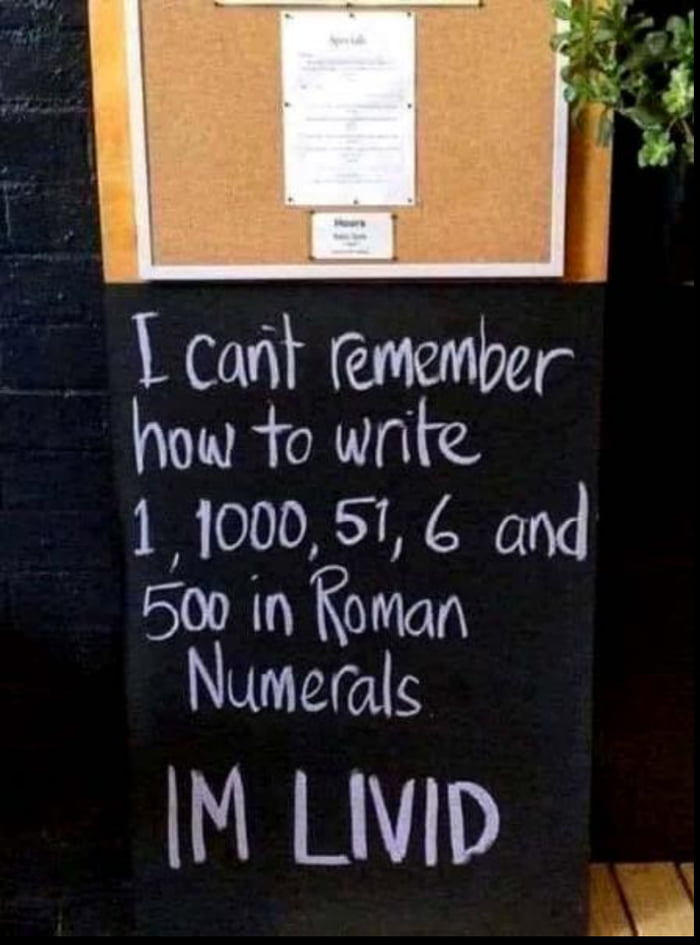 Specials
Hours
I can't remember
how to write
1, 1000, 51, 6 and
500 in Roman
Numerals
IM LIVID